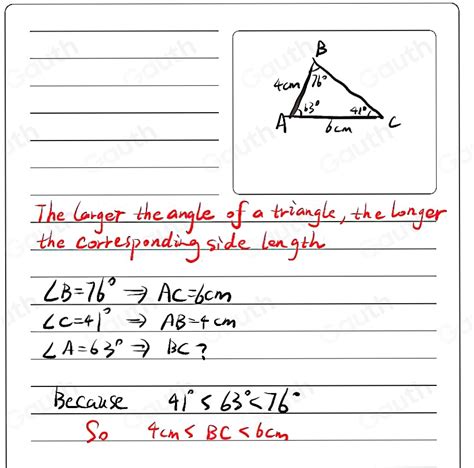 B
4cm 76°
63° 41°
A 6cm C
The larger the angle of a triangle, the longer
the corresponding side length
∠B=76° ⇒ AC=6cm
∠C=41° ⇒ AB=4cm
∠A=63° ⇒ BC?
Because 41° < 63° < 76°
So 4cm < BC < 6cm
Gauth